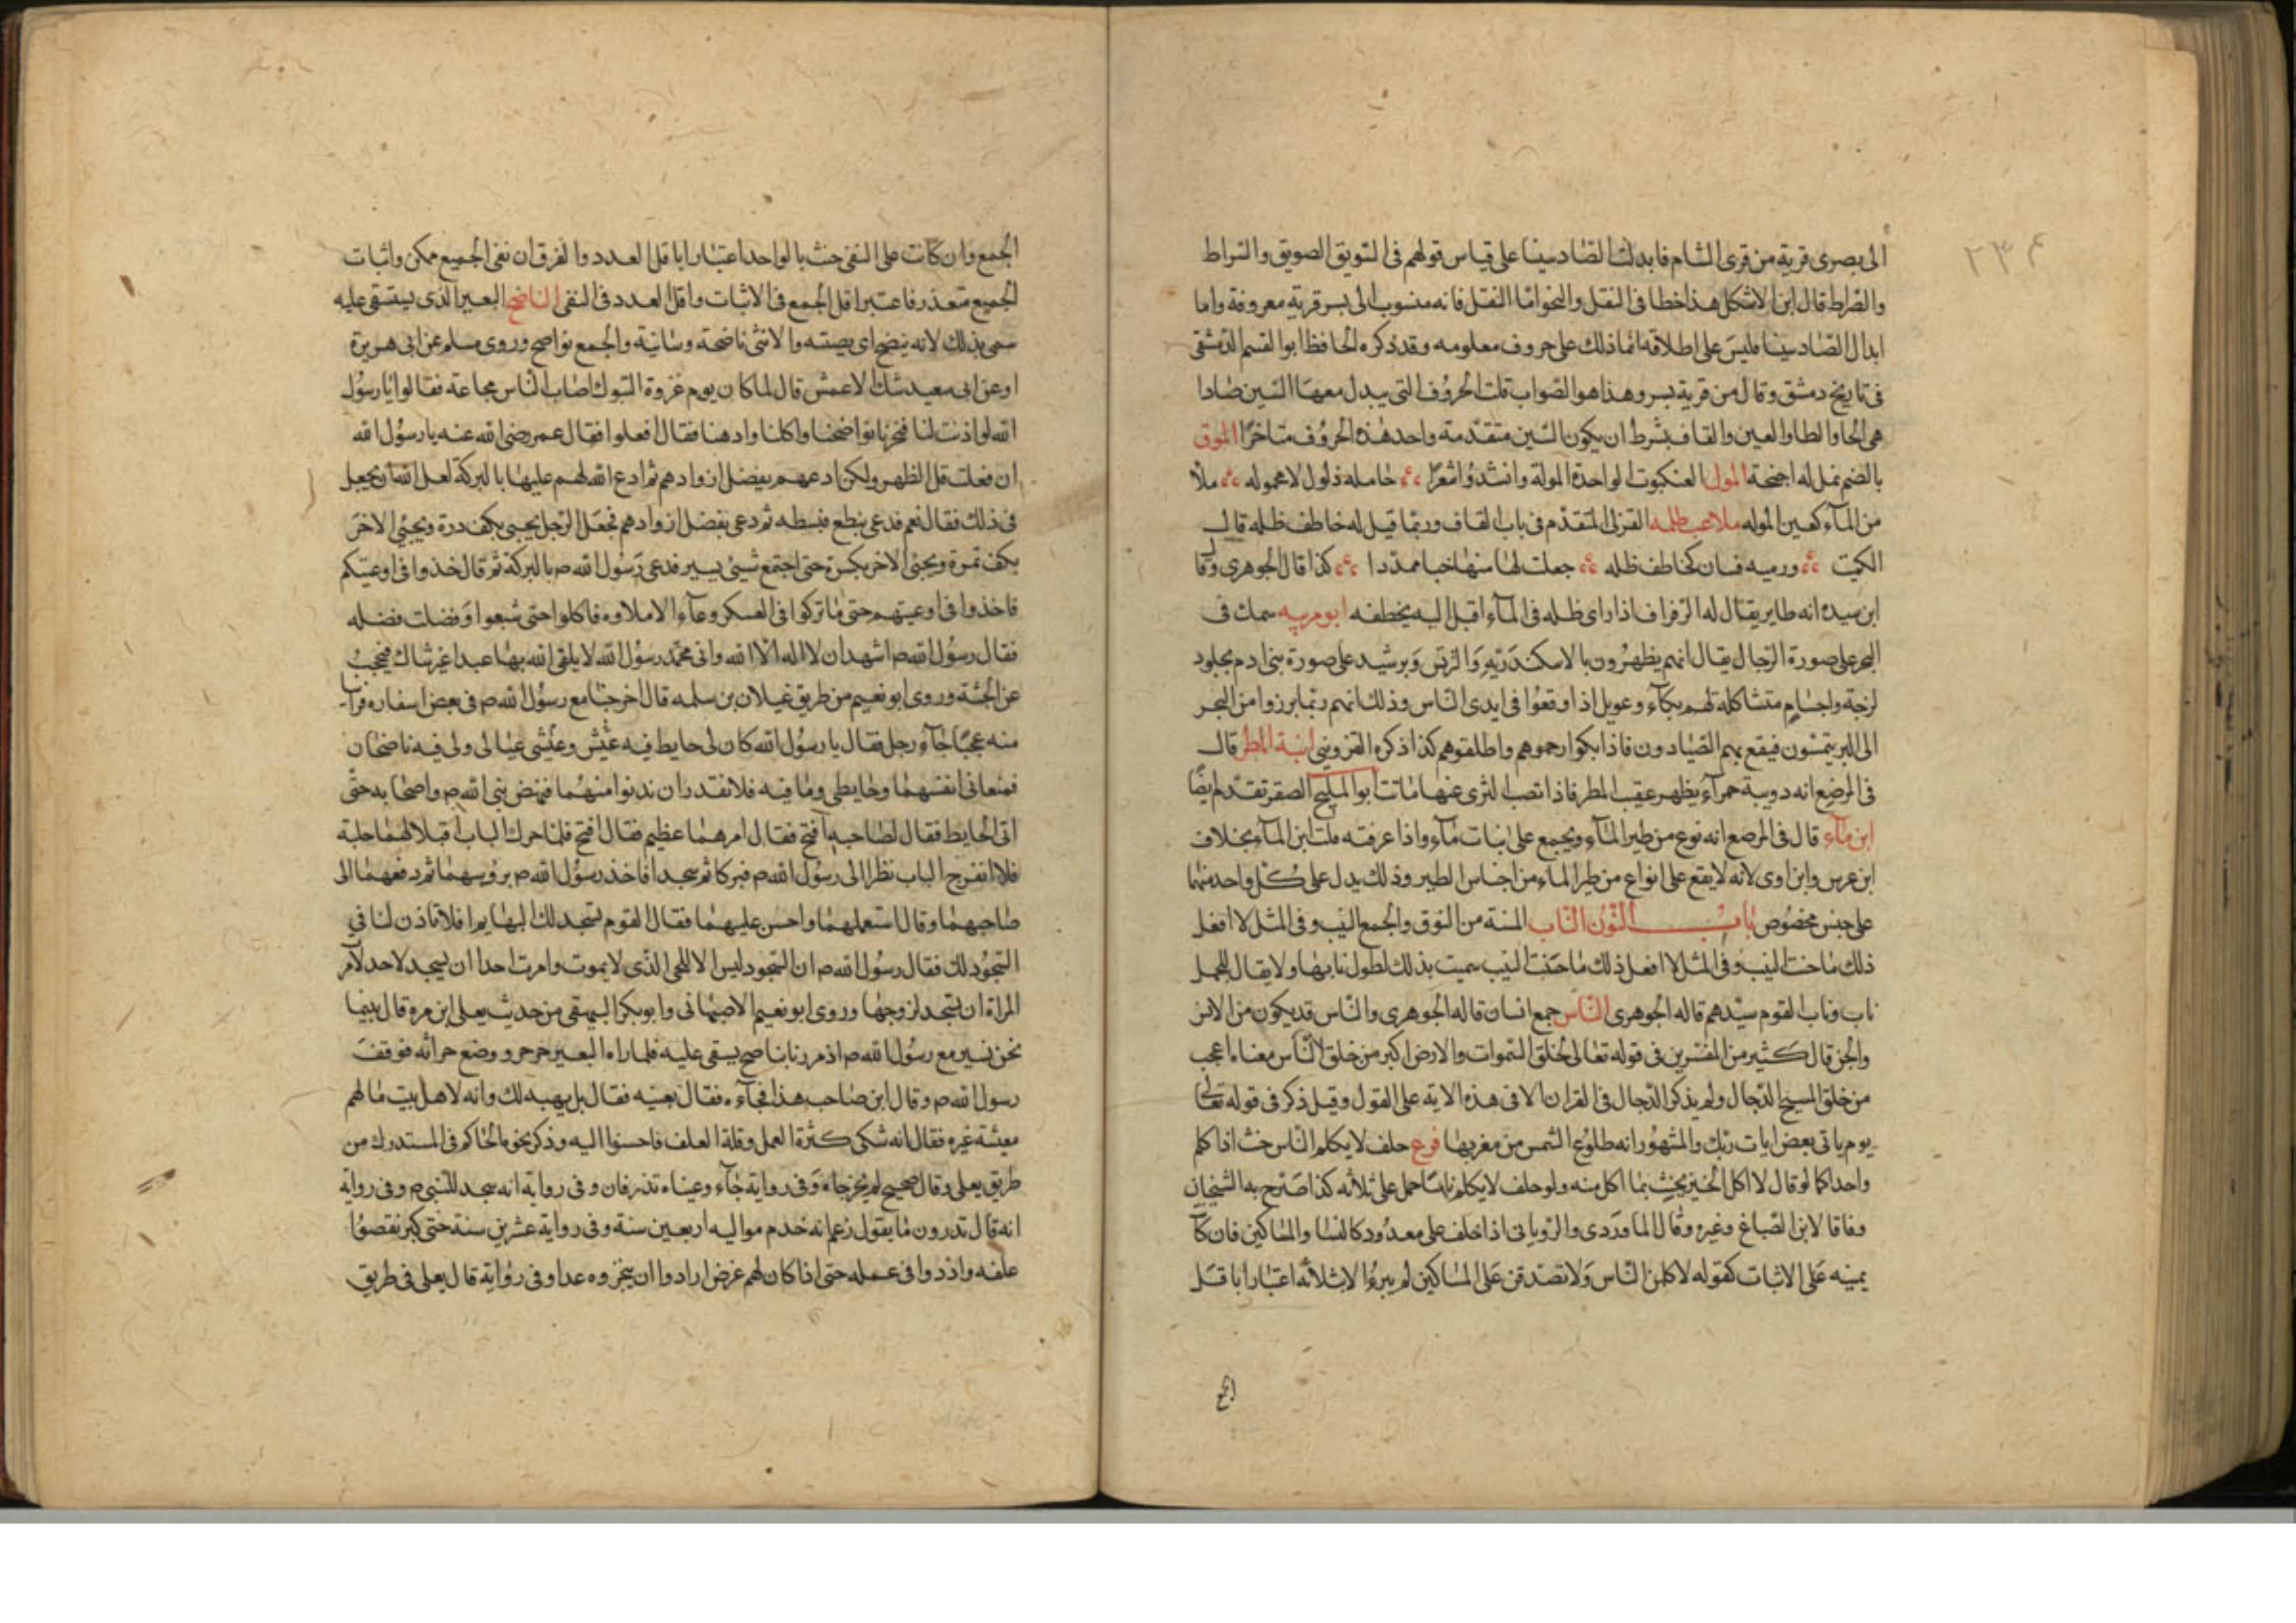 ٢٣٤
الى بصرى قرية من قرى الشام فابدلت الصاد سينا على قياس قولهم فى السويق الصويق والسراط
والصراط قال ابن الاشكل هذا خطا فى النقل والنحو اما النقل فانه منسوب الى بسر قرية معروفة واما
ابدال الصاد سينا فليس على اطلاقه انما ذلك على حروف معلومه وقد ذكره الحافظ ابو القسم الدمشقى
فى تاريخ دمشق وقال من قرية بسر وهذا هو الصواب قلت الحروف التى يبدل معها السين صادا
هى الخا والطا والعين والقاف بشرط ان يكون السين متقدمة واحد هذه الحروف متاخرا الموق
بالضم نمل له اجنحة المول العنكبوت الواحدة المولة وانشدوا شعرا حامله ذلول لا محموله ملا
من الماء كعين الموله ملاعب ظله القرلى المتقدم فى باب القاف وربما قيل له خاطف ظله قال
الكميت وريه فسان كخاطف ظله جعلت لهاسنها خبا ممددا كذا قال الجوهرى وقا
ابن سيده انه طاير يقال له الرفراف اذا راى ظله فى الماء اقبل اليه يخطفه ابو مرينه سمك فى
البحر على صورة الرجال يقال انهم يظهرون بالاسكندرية والبرلس وبرشيد على صورة بنى ادم بجلود
لزجة واجسام متشاكلة لهم بكآء وعويل اذا وقعوا فى ايدى الناس وذلك انهم ربما برزوا من البحر
الى البر يتمشون فيقع بهم الصيادون فاذا بكوا رحموهم واطلقوهم كذا ذكره القزوينى ابنة المطر قال
فى المرضع انه دويبة حمرآء يظهر عقيب المطر فاذا نصب الثرى عنها ماتت ابو المليح الصقر تقدم ايضا
ابن مآء قال فى المرصع انه نوع من طير المآء ويجمع على بنات مآء واذا عرفته قلت ابن المآء بخلاف
ابن عرس وابن اوى لانه لا يقع على انواع من طير الماء من اجناس الطير وذلك يدل على كل واحد منهما
على جنس مخصوص باب النون الناب المسنة من النوق والجمع النيب وفى المثل لا افعل
ذلك ما حنت النيب وفى المثل لا افعل ذلك ما حنت النيب سميت بذلك لطول نابها ولا يقال للجمل
ناب وناب القوم سيدهم قاله الجوهرى الناس جمع انسان قاله الجوهرى والناس قد يكون من الانس
والجن قال كثير من المفسرين فى قوله تعالى لخلق السموات والارض اكبر من خلق الناس معناه اعجب
من خلق المسيح الدجال ولم يذكر الدجال فى القران الا فى هذه الاية على القول وقيل ذكر فى قوله تعالى
يوم ياتى بعض ايات ربك والمشهور انه طلوع الشمس من مغربها فرع حلف لا يكلم الناس حنث اذا كلم
واحدا كما لو قال لا اكل الخبز يحنث بما اكل منه ولو حلف لا يكلم ناسا حمل على ثلاثه كذا صرح به الشيخان
وفاقا لابن الصباغ وغيره وقال الماوردى والرويانى اذا حلف على معدود كالنسا والمساكين فان كا
يمينه على الاثبات كقوله لا كلمن الناس ولا تصدقن على المساكين لم يبرء الا بثلاثه اعتبارا باقل
الجمع
الجمع وان كانت على النفى حنث بالواحد اعتبارا باقل العدد والفرق ان نفى الجميع ممكن واثبات
الجميع متعذر فاعتبر اقل الجمع فى الاثبات واقل العدد فى النفى الناضح البعير الذى يستقى عليه
سمى بذلك لانه ينضح اى يصبه والانثى ناضحة وسانية والجمع نواضح وروى مسلم عن ابى هريرة
او عن ابى سعيد شك الاعمش قال لما كان يوم غزوة التبوك اصاب الناس مجاعة فقالوا يا رسول
الله لو اذنت لنا فنحرنا نواضحنا واكلنا وادهنا فقال افعلوا فقال عمر رضى الله عنه يا رسول الله
ان فعلت قل الظهر ولكن ادعهم بفضل ازوادهم ثم ادع الله لهم عليها بالبركة لعل الله ان يجعل
فى ذلك فقال نعم فدعى بنطع فبسطه ثم دعى بفضل ازوادهم فجعل الرجل يجيى بكف درة ويجئ الاخر
بكف تمرة ويجئ الاخر بكسرة حتى اجتمع شيئ يسير فدعى رسول الله ص بالبركة ثم قال خذوا فى اوعيتكم
فاخذوا فى اوعيتهم حتى ما تركوا فى العسكر وعآء الا ملاوه فاكلوا حتى شبعوا وفضلت فضله
فقال رسول الله ص اشهد ان لا اله الا الله وانى محمد رسول الله لا يلقى الله بها عبدا غير شاك فيحجب
عن الجنة وروى ابو نعيم من طريق غيلان بن سلمه قال خرجنا مع رسول الله ص فى بعض اسفاره فراينا
منه عجبا جاء رجل فقال يا رسول الله كان لى حايط فيه عيشى وعيشى عيالى ولى فيه ناضحان
فمنعانى انفسهما وحايطى وما فيه فلا نقدر ان ندنوا منهما فنهض نبى الله ص واصحابه حتى
اتى الحايط فقال لصاحبه افتح فقال امرهما عظيم فقال افتح فلما حرك الباب اقبلا لهما جلبة
فلما انفرج الباب نظرا الى رسول الله ص فبركا ثم سجدا فاخذ رسول الله ص بروسهما ثم دفعهما الى
صاحبهما وقال استعملهما واحسن عليهما فقال القوم تسجد لك البهايم افلا تاذن لنا فى
السجود لك فقال رسول الله ص ان السجود ليس الا للحى الذى لا يموت ولو امرت احدا ان يسجد لاحد لامر
المراة ان تسجد لزوجها وروى ابو نعيم الاصبهانى وابو بكر البيهقى من حديث يعلى ابن مره قال بينما
نحن نسير مع رسول الله ص اذ مررنا بناضح يسقى عليه فلما راه البعير جرجر ووضع جرانه فوقف
رسول الله ص وقال اين صاحب هذا فجآءه فقال بعنيه فقال بل يهبه لك وانه لاهل بيت ما لهم
معيشة غيره فقال انه شكى كثرة العمل وقلة العلف فاحسنوا اليه وذكر نحوه الحاكم فى المستدرك من
طريق يعلى وقال صحيح لم يخرجاه وفى رواية جاء وعيناه تذرفان وفى رواية انه سجد للنبى ص وفى رواية
انه قال تدرون ما يقول زعم انه خدم مواليه اربعين سنة وفى رواية عشرين سنة حتى كبر نقصوا
علفه وازدوا فى عمله حتى اذا كان لهم غرض ارادوا ان ينحروه غدا وفى رواية قال يعلى فى طريق